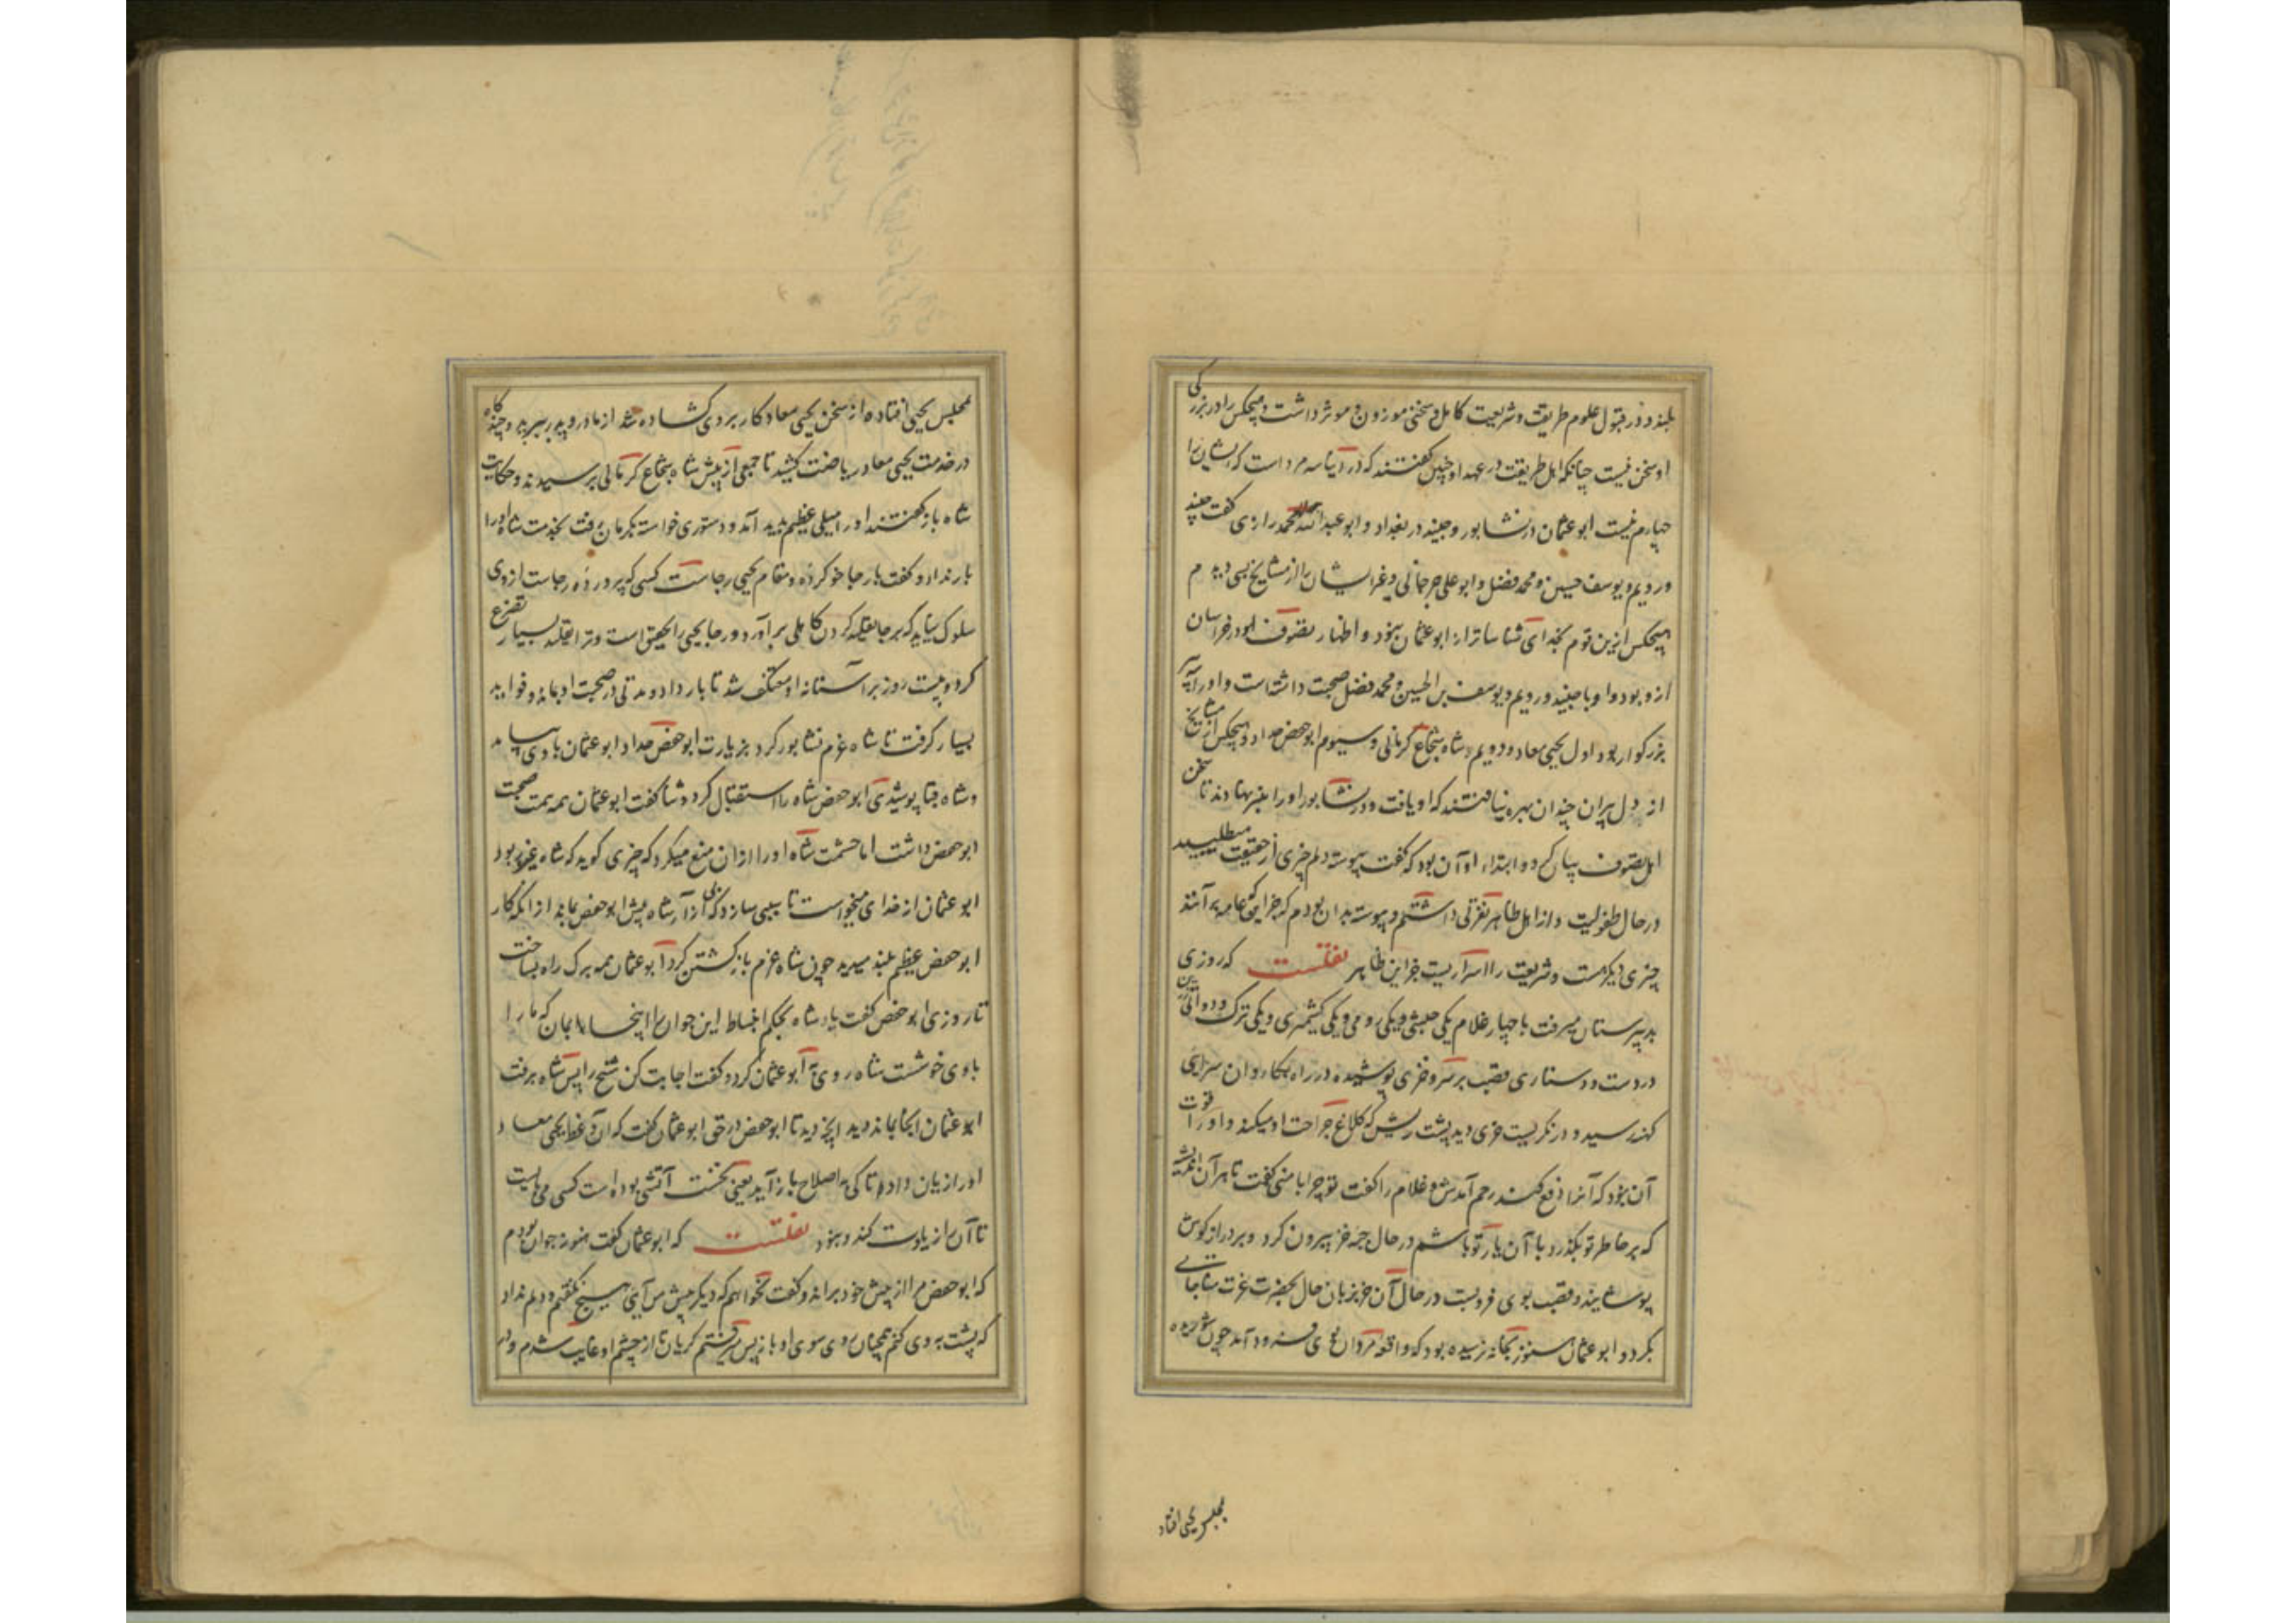 بلند و در قبول علوم طریقت و شریعت کامل و سخنی موزون و موثر داشت و هیچکس را در بزرگی
او سخن نیست چنانکه اهل طریقت در عهد او چنین گفتند که در دنیا سه مرد است که ایشان را
چهارم نیست ابو عثمان در نشابور و جنید در بغداد و ابو عبدالله محمد رازی گفت جنید
و رویم و یوسف حسین و محمد فضل و ابو علی جرجانی و غیر ایشان را از مشایخ بسی دیدم
هیچکس ازین قوم بخدای شناساتر از ابو عثمان نبود و اظهار تصوف او در خراسان
ازو بود و او با جنید و رویم و یوسف بن الحسین و محمد فضل صحبت داشته است و او را سه پیر
بزرگوار بود اول یحیی معاد و دویم شاه شجاع کرمانی و سیوم ابو حفص حداد و هیچکس از مشایخ
از دل پیران چندان بهره نیافتند که او یافت و در نشابور او را منبر نهادند تا سخن
اهل تصوف بیان کرد و ابتداء او آن بود که گفت پیوسته دلم چیزی از حقیقت میطلبید
در حال طفولیت و از اهل ظاهر نفرتی داشتم و پیوسته بدان بودم که جز این که عامه برآنند
چیزی دیگر هست و شریعت را اسراریست جز این ظاهر نقلست که روزی
بدبیرستان میرفت با چهار غلام یکی حبشی و یکی رومی و یکی کشمیری و یکی ترک و دواتی زرین
در دست و دستاری قصب بر سر و خزی پوشیده در راه بکاروان سرایی
کهنه رسید و در نگریست خری دید پشت ریش که کلاغ جراحت او میکند و او را قوت
آن نبود که آنرا دفع کند رحم آمدش و غلام را گفت تو چرا با منی گفت تا هر اندیشه
که بر خاطر تو بگذرد با آن یار تو باشم در حال جبه خز بیرون کرد و بر دراز گوش
پوشانید و قصب بوی فرو بست در حال آن خر بزبان حال بحضرت عزت مناجاتی
بکرد و ابو عثمان هنوز بخانه نرسیده بود که واقعه مردان بوی فرود آمد چون شوریده
بمجلس یحیی افتاد
بمجلس یحیی افتاده از سخن یحیی معاد کار بر وی گشاده شد از مادر و پدر ببرید و چندگاه
در خدمت یحیی معاد ریاضت کشید تا جمعی از پیش شاه شجاع کرمانی برسیدند و حکایت
شاه باز گفتند او را میلی عظیم پدید آمد و دستوری خواست بکرمان رفت بخدمت شاه او را
بار نداد و گفت با رجا خو کرده و مقام یحیی رجاست کسی که پرورده رجاست از وی
سلوک نیاید که برجا تقلید کردن کاهلی بر آورد و رجا یحیی را تحقیق است و ترا تقلید بسیار تضرع
کرد و بیست روز بر آستانه او معتکف شد تا بار داد و مدتی در صحبت او بماند و فواید
بسیار گرفت تا شاه عزم نشابور کرد بزیارت ابو حفص حداد ابو عثمان با وی بیامد
و شاه قبا پوشیدی ابو حفص شاه را استقبال کرد و ثنا گفت ابو عثمان همه همت صحبت
ابو حفص داشت اما حشمت شاه او را از ان منع میکرد که چیزی گوید که شاه غیور بود
ابو عثمان از خدای میخواست تا سببی سازد که بی آزار شاه پیش ابو حفص بماند از انکه کار
ابو حفص عظیم بلند میدید چون شاه عزم باز گشتن کرد ابو عثمان همه برگ راه بساخت
تا روزی ابو حفص گفت با شاه بحکم انبساط این جوان را اینجا بمان که ما را
با وی خوشست شاه روی به ابو عثمان کرد و گفت اجابت کن شیخ را پس شاه برفت
ابو عثمان آنجا بماند و دید آنچه دید تا ابو حفص در حق ابو عثمان گفت که آن واعظ یحیی معاد
او را زیان داد تا کی باصلاح باز آید یعنی نخست آتشی بوده است کسی می بایست
تا آن را زیادت کند و نبود نقلست که ابو عثمان گفت هنوز جوان بودم
که ابو حفص مرا از پیش خود براند و گفت نخواهم که دیگر پیش من آیی هیچ نگفتم و دلم نداد
که پشت بر وی کنم همچنان روی سوی او باز پس میرفتم گریان تا از چشم او غایب شدم و در